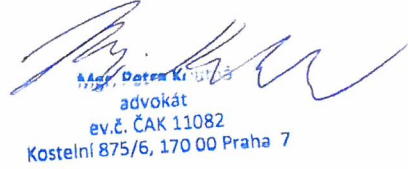 Mgr. Petra
advokát
ev.č. ČAK 11082
Kostelní 875/6, 170 00 Praha 7